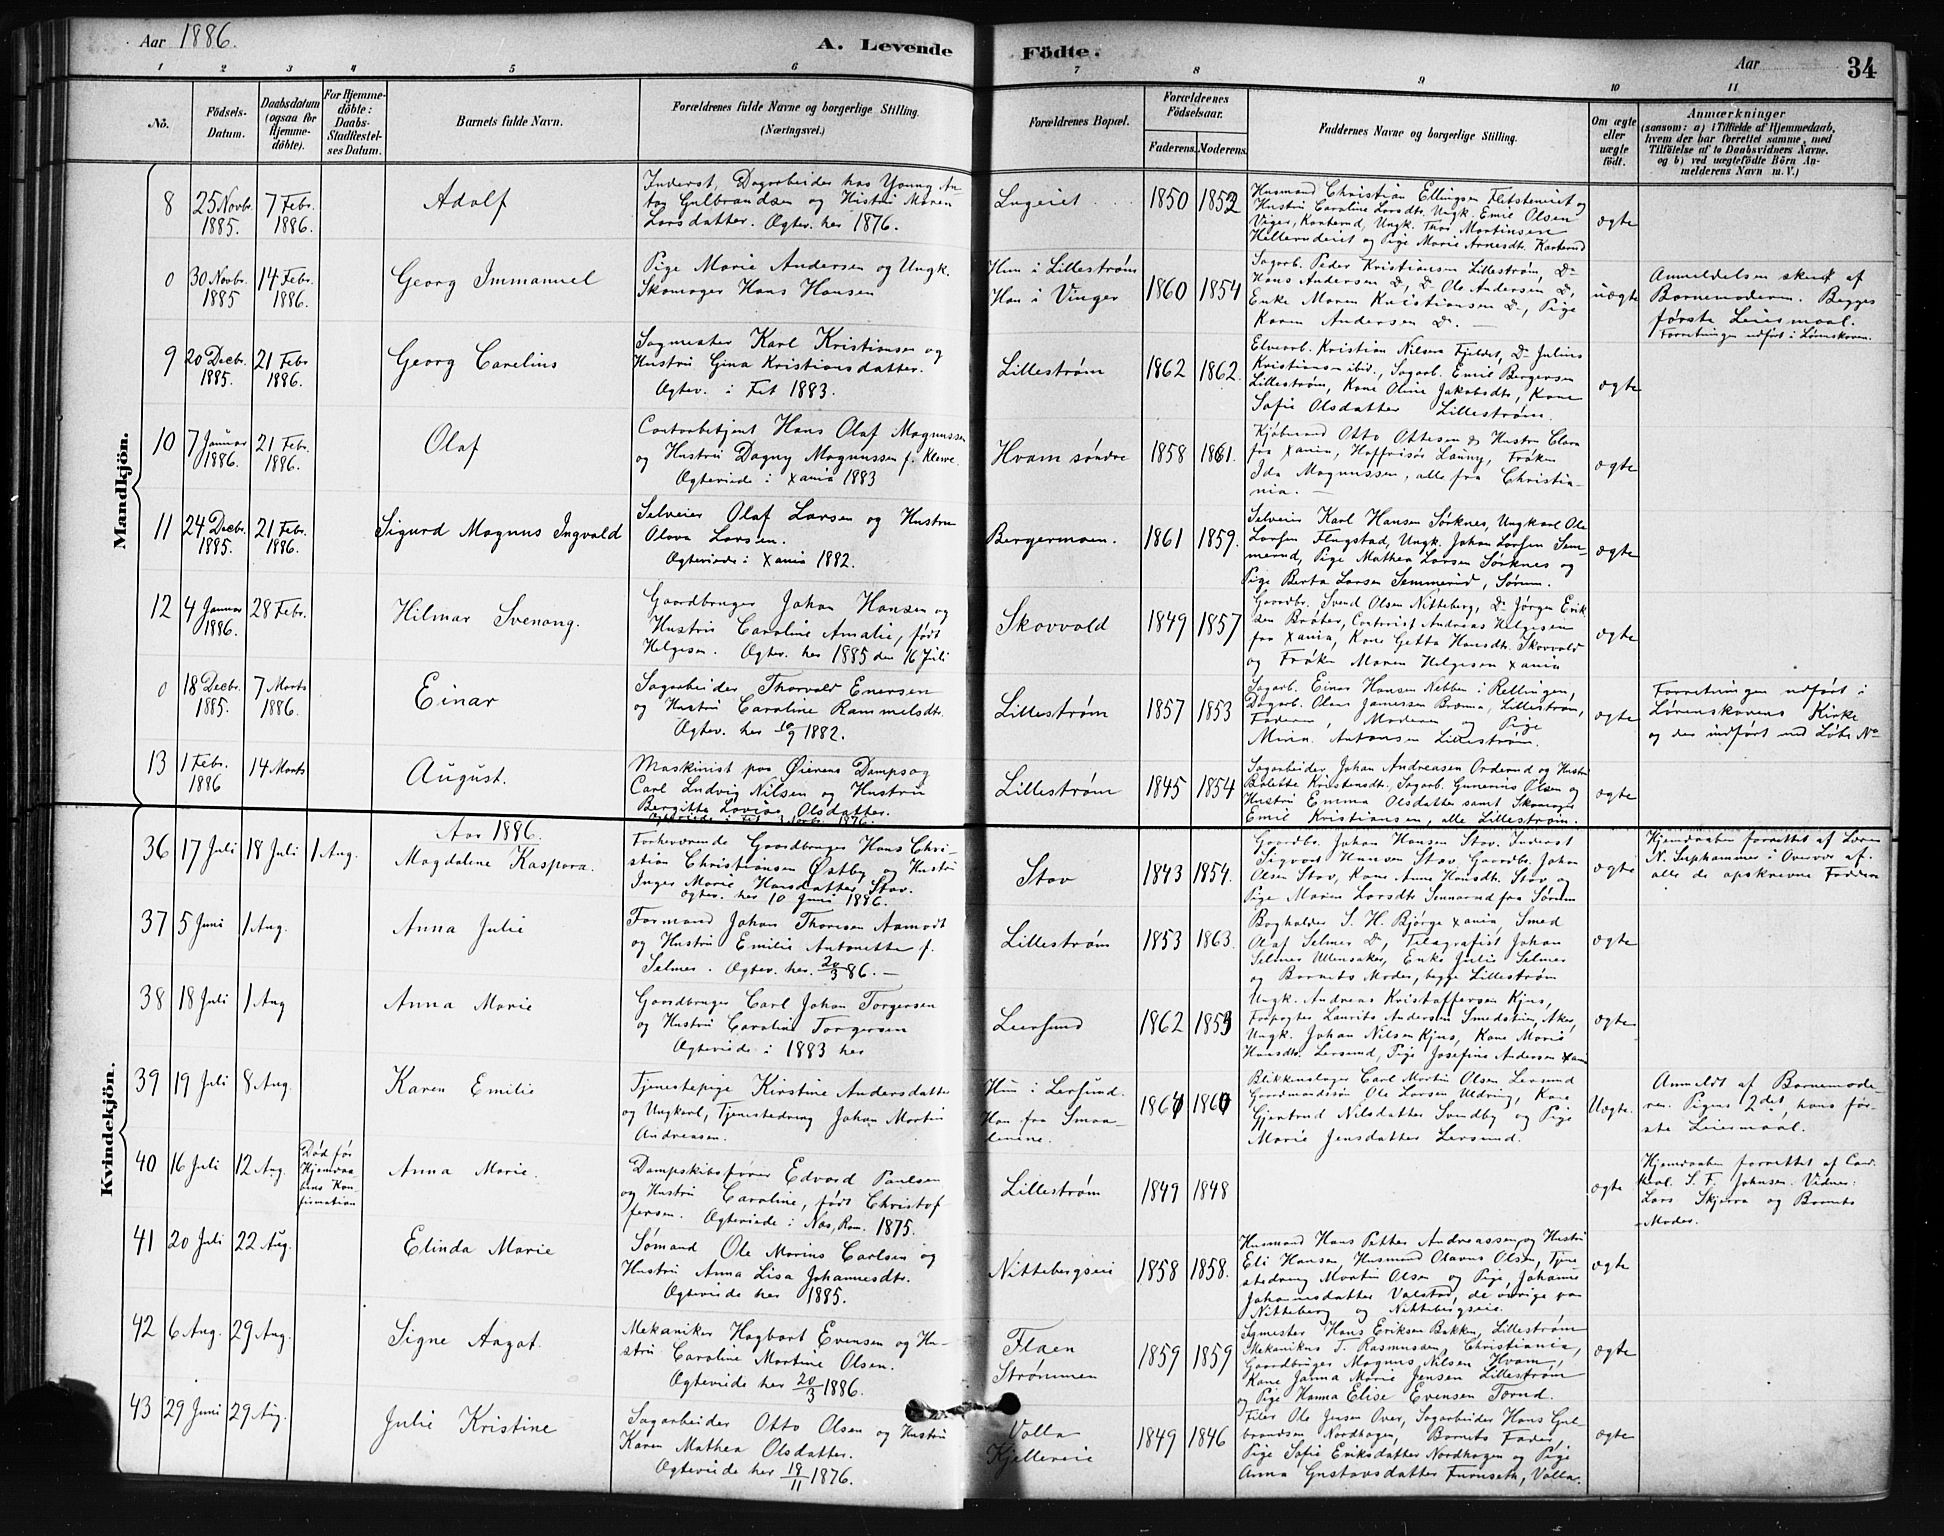 Aar 1886.
A. Levende Födte.
Aar 34
1 2 3 4 5 6 7 8 9 10 11
No.
Födsels-Datum.
Daabsdatum (ogsaa for Hjemme-döbte).
For Hjemme-döbte: Daabs-Stadfæstel-ses Datum.
Barnets fulde Navn.
Forældrenes fulde Navne og borgerlige Stilling.
(Næringsvei.)
Forældrenes Bopæl.
Forældrenes Födselsaar.
Faderens. Moderens.
Faddernes Navne og borgerlige Stilling.
Om ægte eller uægte födt.
Anmærkninger
(sansom: a) i Tilfælde af Hjemmedaab,
hvem der har forrettet samme, med
Tilföielse af to Daabsvidners Navne,
og b) ved uægtefödte Börn An-
melderens Navn m. V.)
Mandkjön.
8 25 Novbr. 1885. 7 Febr. 1886.
Adolf
Inderst, Dagarbeider hos Young An-
ton Gulbrandsen og Hustru Maren
Larsdatter. Ægtev. her 1876.
1850 1852
Husmand Christian Ellingsen
Hustru Caroline Larsdtr. Ungk. Emil Olsen
Ungk. Thor Martinsen
og Pige Marie Arnesdtr.
ægte
0 30 Novbr. 1885 14 Febr. 1886.
Georg Immanuel
Pige Marie Andersen og Ungk.
Skomager Hans Hansen
Hun i Lilleström
Han i Vinger
1860 1854
Sagarb. Peder Kristiansen Lillestrøm, Do
Hans Andersen Do, Do Ole Andersen Do,
Enke Maren Kristiansen Do, Pige
Karen Andersen Do. —
uægte
Anmeldelsen skeed af
Barnemoderen. Begges
første Leiermaal.
Forretningen udført i Lørenskoven.
9 20 Decbr. 1885. 21 Febr 1886.
Georg Carelius
Sagmester Karl Kristiansen og
Hustru Gina Kristiansdatter.
Ægtev. i Fet 1883.
Lillestrøm
1862 1862.
Elvearb. Kristian Nilsen Fjeldet, Do Julius
Kristiansen ibid., Sagarb. Emil Bergersen
Lillestrøm, Kone Oline Jakobsdtr, Kone
Sofie Olsdatter Lillestrøm.
ægte
10 7 Januar 1886. 21 Febr. 1886.
Olaf
Contorbetjent Hans Olaf Magnussen
og Hustru Dagny Magnussen f. Klewe.
Ægteviede i Xania 1883
Hvam søndre
1858 1861.
Kjøbmand Otto Ottesen & Hustru Clara
fra Xania, Frøken
Ida Magnussen, alle fra Christia-
nia. —
ægte
11 24 Decbr. 1885. 21 Febr. 1886.
Sigurd Magnus Ingvald
Selveier Olaf Larsen og Hustru
Olava Larsen.
Ægteviede i Xania 1882.
Bergermoen.
1861 1859.
Selveier Karl Hansen Sørknes, Ungkarl Ole
Larsen Flugstad, Ungk. Johan Larsen Sem-
merud, Pige Mathea Larsen Sørknes og
Pige Berta Larsen Semmerud, Sørum.
ægte
12 4 Januar 1886. 28 Febr.
Hilmar Svenang.
Gaardbruger Johan Hansen og
Hustru Caroline Amalie, født
Helgesen. Ægtev. her 1885 den 16 Juli
Skovvold
1849 1857
Gaardbr. Svend Olsen Nitteberg, Do Jørgen Erik-
sen Bråter, Contorist Andreas Helgesen
fra Xania, Kone Getta Hansdtr. Skovvold
og Frøken Maren Helgesen Xania
ægte
0 18 Decbr. 1885. 7 Marts 1886.
Einar
Sagarbeider Thorvald Enersen
og Hustru Caroline Rammelsdtr.
Ægtev. her 10/9 1882.
Lillestrøm
1857 1853
Sagarb. Einar Hansen Nebben i Rellingen,
Dagarb. Olaus Lillestrøm,
Faderen, Moderen og Pige
Mina Antonsen Lillestrøm.
ægte
Forretningen udført i
Lørenskovens Kirke
og der indført med Løbe No
13 1 Febr. 1886 14 Marts
August.
Maskinist paa Øierens Dampsag
Carl Ludvig Nilsen og Hustru
Bergitte Lovise Olsdatter.
Ægteviede i Fet 1876.
Lillestrøm
1845 1854
Sagarbeider Johan Andreasen Orderud og Hustru
Bolette Kristensdtr. Sagarb. Gunerius Olsen og
Hustru Emma Olsdatter samt Skomager
Emil Kristiansen, alle Lillestrøm.
ægte
Kvindekjön.
Aar 1886.
36 17 Juli 18 Juli 1 Aug.
Magdaline Kaspara.
Forhenværende Gaardbruger Hans Chri-
stian Christiansen Østby og Hustru
Inger Marie Hansdatter Stav.
Ægtev. her 10 Juni 1886.
Stav
1843 1854.
Gaardbr. Johan Hansen Stav. Inderst
Sigvart Hansen Stav, Gaardbr. Johan
Olsen Stav, Kone Anne Hansdtr. Stav og
Pige Maren Larsdtr. fra Sørum
ægte
Hjemdaaben forrettet af
i Overvær af.
alle de opskrevne Faddere
37 5 Juni 1 Aug.
Anna Julie
Formand Johan Thoresen Aamodt
og Hustru Emilie Antonette f.
Selmer. Ægtev. her 20/3 86. —
Lillestrøm
1853 1863.
Bogholder S. H. Bjørge Xania, Smed
Olaf Selmer Do, Telegrafist Johan
Selmer Ullensaker, Enke Julie Selmer
og Barnets Moder, begge Lillestrøm
ægte
38 18 Juli 1 Aug
Anna Marie
Gaardbruger Carl Johan Torgersen
og Hustru Caroline Torgersen
Ægteviede i 1883 her
Leersund
1862 1853
Ungk. Andreas Kristoffersen Kjus,
Forpagter Laurits Andersen Smedstuen, Aker,
Ungk. Johan Nilsen Kjus, Kone Marie
Hansdtr. Lersund, Pige Josefine Andersen Xania
ægte
39 19 Juli 8 Aug.
Karen Emilie
Tjenestepige Kirstine Andersdatter
og Ungkarl, Tjenestedreng Johan Martin
Andreasen.
Hun i Lersund.
Han fra Smaa-
lenene.
1867 1860
Blikkenslager Carl Martin Olsen Lersund
Gaardmandssøn Ole Larsen Uldring, Kone
Gjertrud Nilsdatter Sundby og Pige
Marie Jensdatter Lersund.
Uægte.
Anmeldt af Barnemode-
ren. Pigens 2det, hans før-
ste Leiermaal.
40 16 Juli 12 Aug.
Død før
Hjemdaa-
bens Kon-
firmation
Anna Marie.
Dampskibsfører Edvard Paulsen
og Hustru Caroline, født Christof-
fersen. Ægteviede i Næs, Rom. 1875.
Lillestrøm
1849 1848
ægte
Hjemdaaben forrettet af Cand.
theol. S. F. Johnsen. Vidner:
Lars Skjerva og Barnets
Moder.
41 20 Juli 22 Aug.
Elinda Marie
Sømand Ole Marius Carlsen og
Hustru Anna Lisa Johannesdtr.
Ægteviede her 1885.
Nittebergseie
1858 1858.
Husmand Hans Petter Andreassen og Hustru
Eli Hansen, Husmand Olavus Olsen, Tjene-
stedreng Martin Olsen og Pige, Johanne
Johannesdatter Valstad, de øvrige paa
Nitteberg og Nittebergseie.
ægte
42 6 Aug. 29 Aug.
Signe Aagot.
Mekaniker Hagbart Evensen og Hu-
stru Caroline Martine Olsen.
Ægteviede her 20/3 1886.
Flaen
Strømmen
1859 1859
Sagmester Hans Eriksen Bakken, Lillestrøm
Mekanikus T. Rasmussen, Christiania,
Gaardbruger Magnus Nilsen Hvam,
Kone Janna Marie Jensen Lillestrøm
og Pige Hanna Elise Evensen Torud.
ægte
43 29 Juni 29 Aug.
Julie Kristine
Sagarbeider Otto Olsen og Hustru
Karen Mathea Olsdatter.
Ægteviede her 19/11 1876.
Volla
Kjellereie
1849 1846
Filer Ole Jensen Over, Sagarbeider Hans Gul-
brandsen Nordhagen, Barnets Fader,
Pige Sofie Eriksdatter Nordhagen og Pige
Anna Gustavsdatter Furuseth, Volla.
ægte